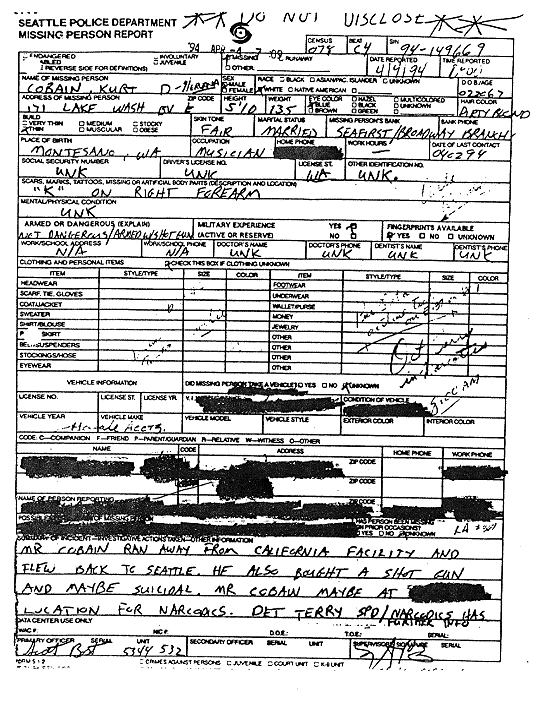 SEATTLE POLICE DEPARTMENT ** DO NOT DISCLOSE **
MISSING PERSON REPORT
CENSUS 078 BEAT C4 S/N 94-149669
ENDANGERED INVOLUNTARY MISSING RUNAWAY DATE REPORTED 4/4/94 TIME REPORTED
ABLED JUVENILE OTHER
(REVERSE SIDE FOR DEFINITIONS)
NAME OF MISSING PERSON SEX MALE FEMALE RACE BLACK ASIAN/PAC. ISLANDER UNKNOWN WHITE NATIVE AMERICAN D O B/AGE
COBAIN, KURT D 022067
ADDRESS OF MISSING PERSON ZIP CODE HEIGHT WEIGHT EYE COLOR BLUE BROWN HAZEL BLACK GREEN MULTICOLORED UNKNOWN HAIR COLOR
171 LAKE WASH BV E 5'10 135
BUILD VERY THIN MEDIUM STOCKY THIN MUSCULAR OBESE SKIN TONE MARITAL STATUS MISSING PERSON'S BANK BANK PHONE
FAIR MARRIED SEAFIRST/BROADWAY BRANCH
PLACE OF BIRTH OCCUPATION HOME PHONE WORK HOURS DATE OF LAST CONTACT
MONTESANO, WA MUSICIAN 040294
SOCIAL SECURITY NUMBER DRIVER'S LICENSE NO. LICENSE ST. OTHER IDENTIFICATION NO.
UNK UNK WA UNK.
SCARS, MARKS, TATTOOS, MISSING OR ARTIFICIAL BODY PARTS (DESCRIPTION and LOCATION)
"K" ON RIGHT FOREARM
MENTAL/PHYSICAL CONDITION
UNK
ARMED OR DANGEROUS (EXPLAIN) MILITARY EXPERIENCE YES FINGERPRINTS AVAILABLE
NOT DANGEROUS/ARMED W/SHOTGUN (ACTIVE OR RESERVE) NO YES NO UNKNOWN
WORK/SCHOOL ADDRESS WORK/SCHOOL PHONE DOCTOR'S NAME DOCTOR'S PHONE DENTIST'S NAME DENTIST'S PHONE
N/A N/A UNK UNK UNK UNK
CLOTHING AND PERSONAL ITEMS CHECK THIS BOX IF CLOTHING UNKNOWN
ITEM STYLE/TYPE SIZE COLOR ITEM STYLE/TYPE SIZE COLOR
HEADWEAR FOOTWEAR
SCARF, TIE, GLOVES UNDERWEAR
COAT/JACKET WALLET/PURSE
SWEATER MONEY
SHIRT/BLOUSE JEWELRY
SKIRT OTHER
BELT/SUSPENDERS OTHER
STOCKINGS/HOSE OTHER
EYEWEAR OTHER
VEHICLE INFORMATION DID MISSING PERSON TAKE A VEHICLE? YES NO UNKNOWN
LICENSE NO. LICENSE ST. LICENSE YR. CONDITION OF VEHICLE
VEHICLE YEAR VEHICLE MAKE VEHICLE MODEL VEHICLE STYLE EXTERIOR COLOR INTERIOR COLOR
CODE: C—COMPANION F—FRIEND P—PARENT/GUARDIAN R—RELATIVE W—WITNESS O—OTHER
NAME CODE ADDRESS HOME PHONE WORK PHONE
ZIP CODE
ZIP CODE
NAME OF PERSON REPORTING ZIP CODE
HAS PERSON BEEN MISSING
PRIOR OCCASIONS?
YES NO UNKNOWN
SUMMARY OF INCIDENT—INVESTIGATIVE ACTIONS TAKEN—OTHER INFORMATION
MR COBAIN RAN AWAY FROM CALIFORNIA FACILITY AND
FLEW BACK TO SEATTLE. HE ALSO BOUGHT A SHOT GUN
AND MAYBE SUICIDAL. MR COBAIN MAYBE AT
LOCATION FOR NARCOTICS. DET TERRY SPD/NARCOTICS HAS
FURTHER INFO
DATA CENTER USE ONLY
WAC # NIC # D.O.E.: T.O.E.: SERIAL:
PRIMARY OFFICER SERIAL UNIT SECONDARY OFFICER SERIAL UNIT SUPERVISOR'S SIGNATURE SERIAL
5344 532
CRIMES AGAINST PERSONS JUVENILE COURT UNIT K-9 UNIT